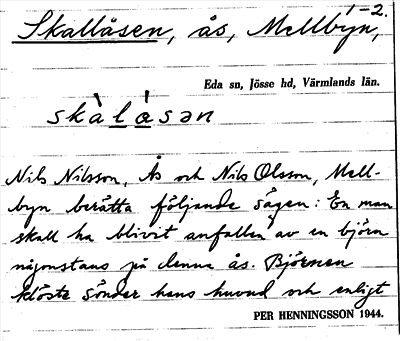 1-2.
Skallåsen, ås, Mellbyn,
Eda sn, Jösse hd, Värmlands län.
skàlåsən
Nils Nilsson, Ås och Nils Olsson, Mell-
byn berätta följande sägen: En man
skall ha blivit anfallen av en björn
någonstans på denna ås. Björnen
klöste sönder hans huvud och enligt
PER HENNINGSSON 1944.